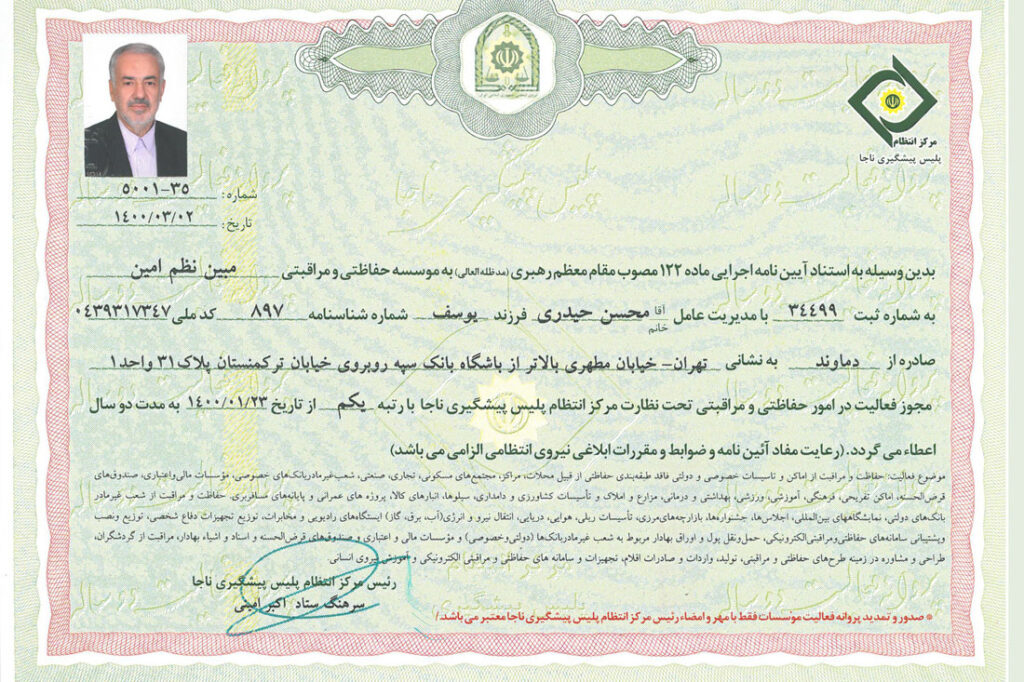 مرکز انتظام
پلیس پیشگیری ناجا
شماره: ۵۰۰۱-۳۵
تاریخ: ۱۴۰۰/۰۳/۰۲
بدین وسیله به استناد آیین نامه اجرایی ماده ۱۲۲ مصوب مقام معظم رهبری (مدظله‌العالی) به موسسه حفاظتی و مراقبتی مبین نظم امین
به شماره ثبت ۳۴۴۹۹ با مدیریت عامل آقا خانم محسن حیدری فرزند یوسف شماره شناسنامه ۸۹۷ کد ملی ۰۴۳۹۳۱۷۳۴۷
صادره از دماوند به نشانی تهران- خیابان مطهری بالاتر از باشگاه بانک سپه روبروی خیابان ترکمنستان پلاک ۳۱ واحد ۱
مجوز فعالیت در امور حفاظتی و مراقبتی تحت نظارت مرکز انتظام پلیس پیشگیری ناجا با رتبه یکم از تاریخ ۱۴۰۰/۰۱/۲۳ به مدت دو سال
اعطاء می گردد. (رعایت مفاد آئین نامه و ضوابط و مقررات ابلاغی نیروی انتظامی الزامی می باشد)
موضوع فعالیت: حفاظت و مراقبت از اماکن و تاسیسات خصوصی و دولتی فاقد طبقه‌بندی حفاظتی از قبیل محلات، مراکز، مجتمع‌های مسکونی، تجاری، صنعتی، شعب‌غیرمادربانک‌های خصوصی، مؤسسات مالی‌واعتباری، صندوق‌های
قرض‌الحسنه، اماکن تفریحی، فرهنگی، آموزشی، ورزشی، بهداشتی و درمانی، مزارع و املاک و تأسیسات کشاورزی و دامداری، سیلوها، انبارهای کالا، پروژه های عمرانی و پایانه‌های مسافربری. حفاظت و مراقبت از شعب غیرمادر
بانک‌های دولتی، نمایشگاههای بین‌المللی، اجلاس‌ها، جشنواره‌ها، بازارچه‌های‌مرزی، تأسیسات ریلی، هوایی، دریایی، انتقال نیرو و انرژی(آب، برق، گاز) ایستگاه‌های رادیویی و مخابرات، توزیع تجهیزات دفاع شخصی، توزیع ونصب
وپشتیبانی سامانه‌های حفاظتی‌ومراقبتی‌الکترونیکی، حمل‌ونقل پول و اوراق بهادار مربوط به شعب غیرمادربانک‌ها (دولتی‌وخصوصی) و مؤسسات مالی و اعتباری و صندوق‌های قرض‌الحسنه و اسناد و اشیاء بهادار، مراقبت از گردشگران،
طراحی و مشاوره در زمینه طرح‌های حفاظتی و مراقبتی، تولید، واردات و صادرات اقلام، تجهیزات و سامانه های حفاظتی و مراقبتی الکترونیکی و آموزش نیروی انسانی.
رئیس مرکز انتظام پلیس پیشگیری ناجا
سرهنگ ستاد اکبر امینی
* صدور و تمدید پروانه فعالیت موسسات فقط با مهر و امضاء رئیس مرکز انتظام پلیس پیشگیری ناجا معتبر می باشد.